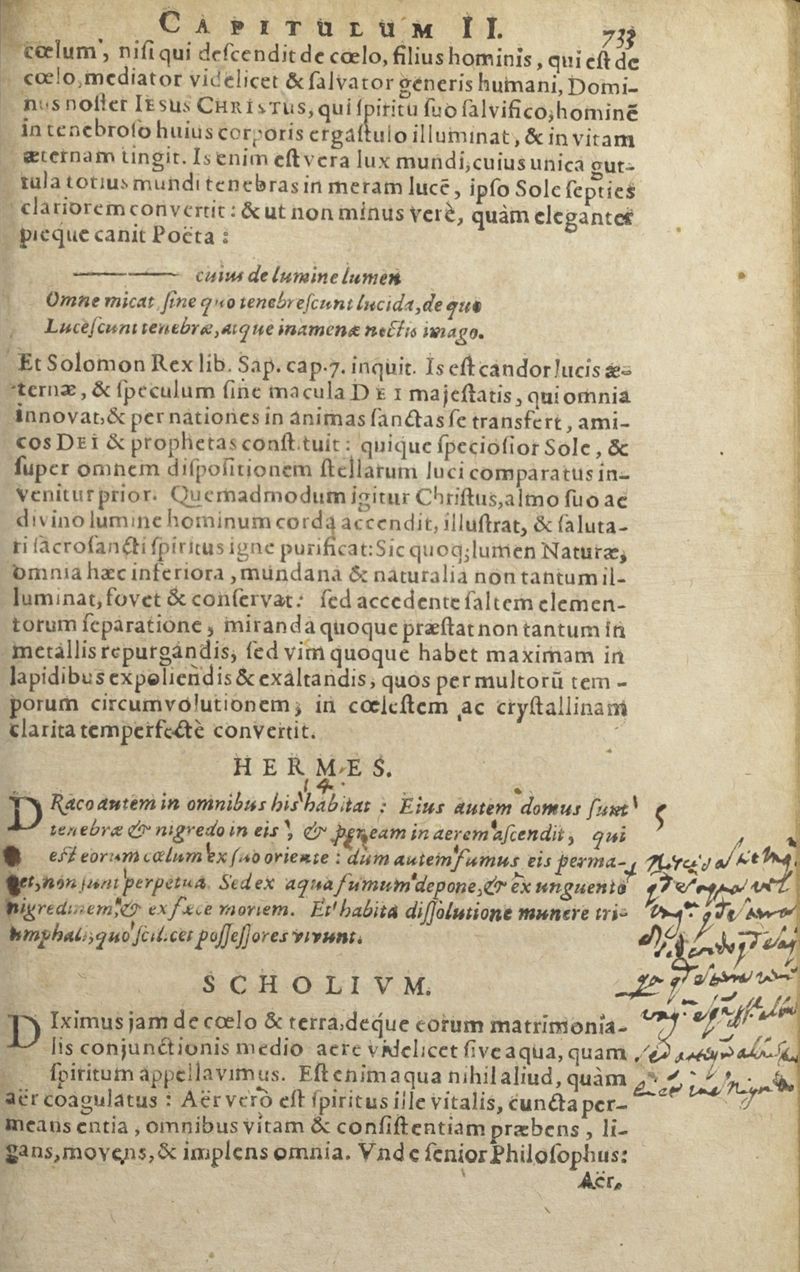 CAPITULUM II. 733
cœlum, nisi qui descendit de cœlo, filius hominis, qui est de
cœlo, mediator videlicet & salvator generis humani, Domi-
nus noster IESUS CHRISTUS, qui spiritu suo salvifico, hominē
in tenebroso huius corporis ergastulo illuminat, & in vitam
æternam tingit. Is enim est vera lux mundi, cuius unica gut-
tula totius mundi tenebras in meram lucē, ipso Sole septies
clariorem convertit: & ut non minus verè, quàm eleganter
pieque canit Poëta:
———— cuius de lumine lumen
Omne micat sine quo tenebrescunt lucida, de quo
Lucescunt tenebræ, atque inamenæ noctis imago.
Et Solomon Rex lib. Sap. cap. 7. inquit. Is est candor lucis æ-
ternæ, & speculum sine macula DEI majestatis, qui omnia
innovat, & per nationes in animas sanctas se transfert, ami-
cos DEI & prophetas constituit: quique speciosior Sole, &
super omnem dispositionem stellarum luci comparatus in-
venitur prior. Quemadmodum igitur Christus, almo suo ac
divino lumine hominum corda accendit, illustrat, & saluta-
ri sacrosancti spiritus igne purificat: Sic quoq; lumen Naturæ,
omnia hæc inferiora, mundana & naturalia non tantum il-
luminat, fovet & conservat: sed accedente saltem elemen-
torum separatione, miranda quoque præstat non tantum in
metallis repurgandis, sed vim quoque habet maximam in
lapidibus expoliendis & exaltandis, quos per multorū tem-
porum circumvolutionem, in cœlestem ac crystallinam
claritatem perfectè convertit.
HERMES.
DRaco autem in omnibus his habitat: Eius autem domus sunt
tenebræ & nigredo in eis, & per eam in aerem ascendit, qui
est eorum cœlum ex suo oriente: dum autem fumus eis perma-
et, non sunt perpetua. Sed ex aqua fumum depone, & ex unguento
nigredinem, & ex fæce mortem. Et habita dissolutione munere tri-
umphali, quo scilicet possessores vivunt.
SCHOLIVM.
DIximus jam de cœlo & terra, deque eorum matrimonia-
lis conjunctionis medio aere videlicet sive aqua, quam
spiritum appellavimus. Est enim aqua nihil aliud, quàm
aër coagulatus: Aër verò est spiritus ille vitalis, cuncta per-
means entia, omnibus vitam & consistentiam præbens, li-
gans, movens, & implens omnia. Vnde senior Philosophus:
Aër,